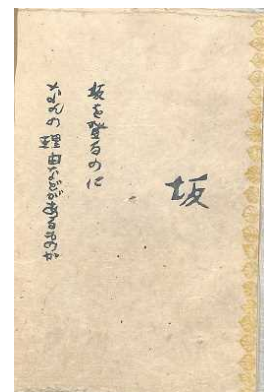 坂
坂を登るのに
なんの理由などがあるものか